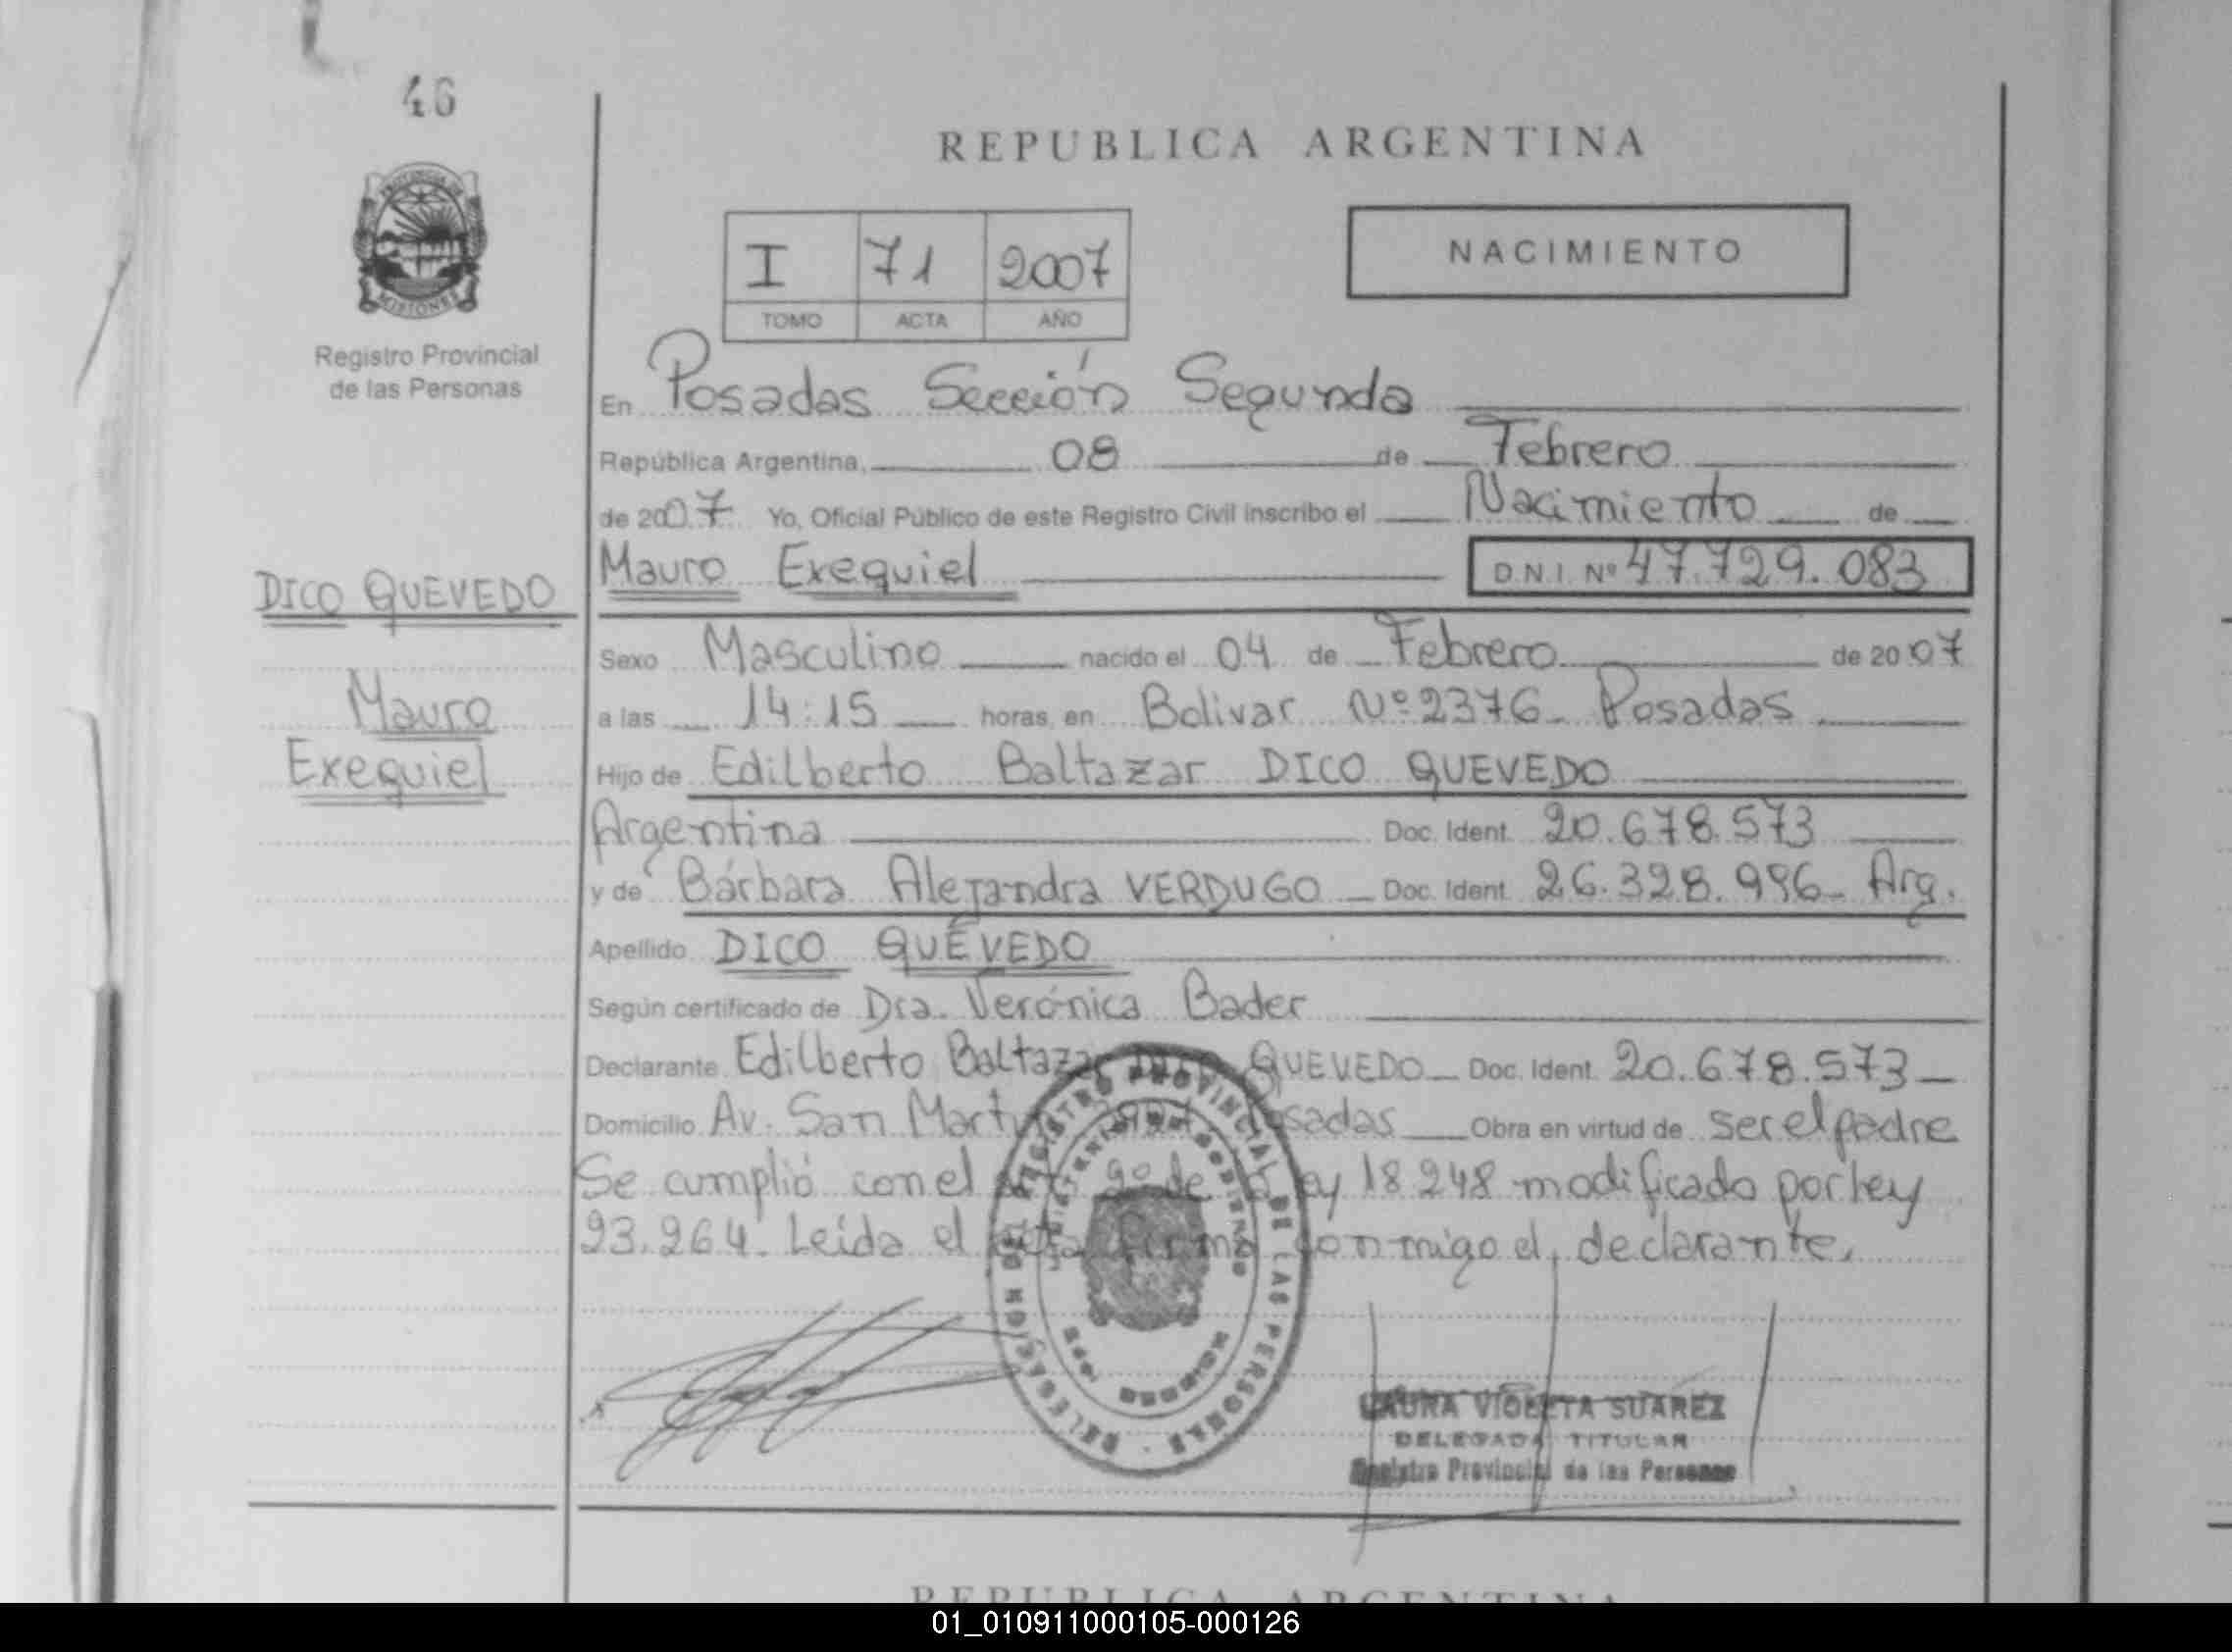 46
PROVINCIA DE
MISIONES
Registro Provincial
de las Personas
DICO QUEVEDO
Mauro
Exequiel
REPUBLICA ARGENTINA
I 71 2007
TOMO ACTA AÑO
NACIMIENTO
En Posadas Sección Segunda
República Argentina, 08 de Febrero
de 2007 Yo, Oficial Público de este Registro Civil inscribo el Nacimiento de
Mauro Exequiel D N I Nº 47.729.083
Sexo Masculino nacido el 04 de Febrero de 2007
a las 14:15 horas, en Bolivar Nº 2376 Posadas
Hijo de Edilberto Baltazar DICO QUEVEDO
Argentina Doc. Ident. 20.678.573
y de Bárbara Alejandra VERDUGO Doc. Ident. 26.328.996 Arg.
Apellido DICO QUEVEDO
Según certificado de Dra. Verónica Bader
Declarante Edilberto Baltazar DICO QUEVEDO Doc. Ident. 20.678.573
Domicilio Av. San Martín Posadas Obra en virtud de ser el padre
Se cumplió con el Art. 2º de la Ley 18.248 modificado por Ley
23.264. Leída el acta firma conmigo el declarante.
REGISTRO PROVINCIAL DE LAS PERSONAS
MISIONES
LAURA VIOLETA SUAREZ
DELEGADA TITULAR
Registro Provincial de las Personas
REPUBLICA ARGENTINA
01_010911000105-000126